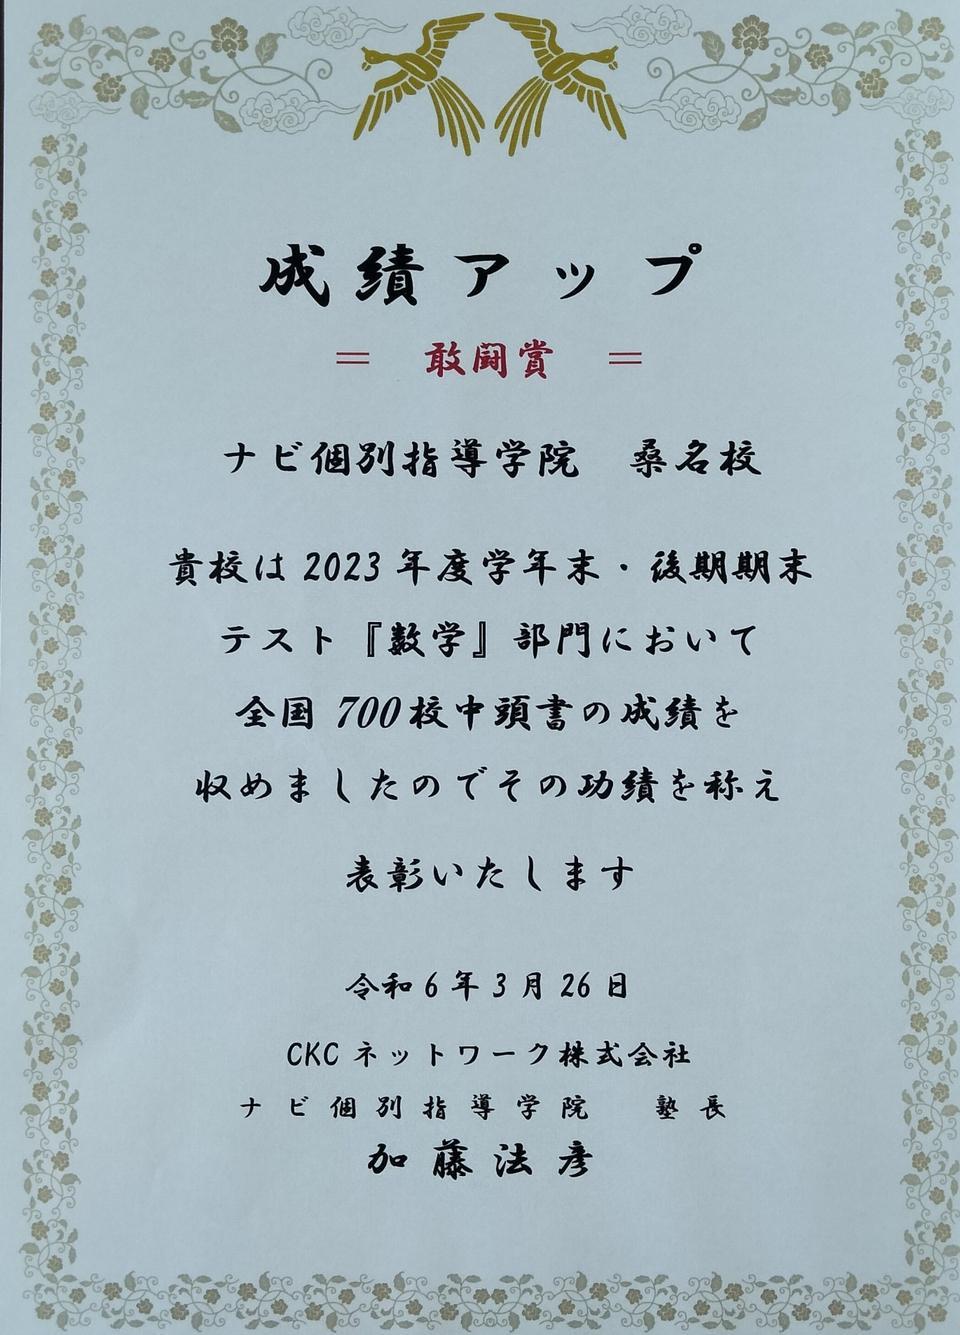 成績アップ
＝　敢闘賞　＝
ナビ個別指導学院　桑名校
貴校は 2023 年度学年末・後期期末
テスト『数学』部門において
全国 700校中頭書の成績を
収めましたのでその功績を称え
表彰いたします
令和 6 年 3 月 26 日
CKC ネットワーク株式会社
ナビ個別指導学院　塾長
加藤法彦